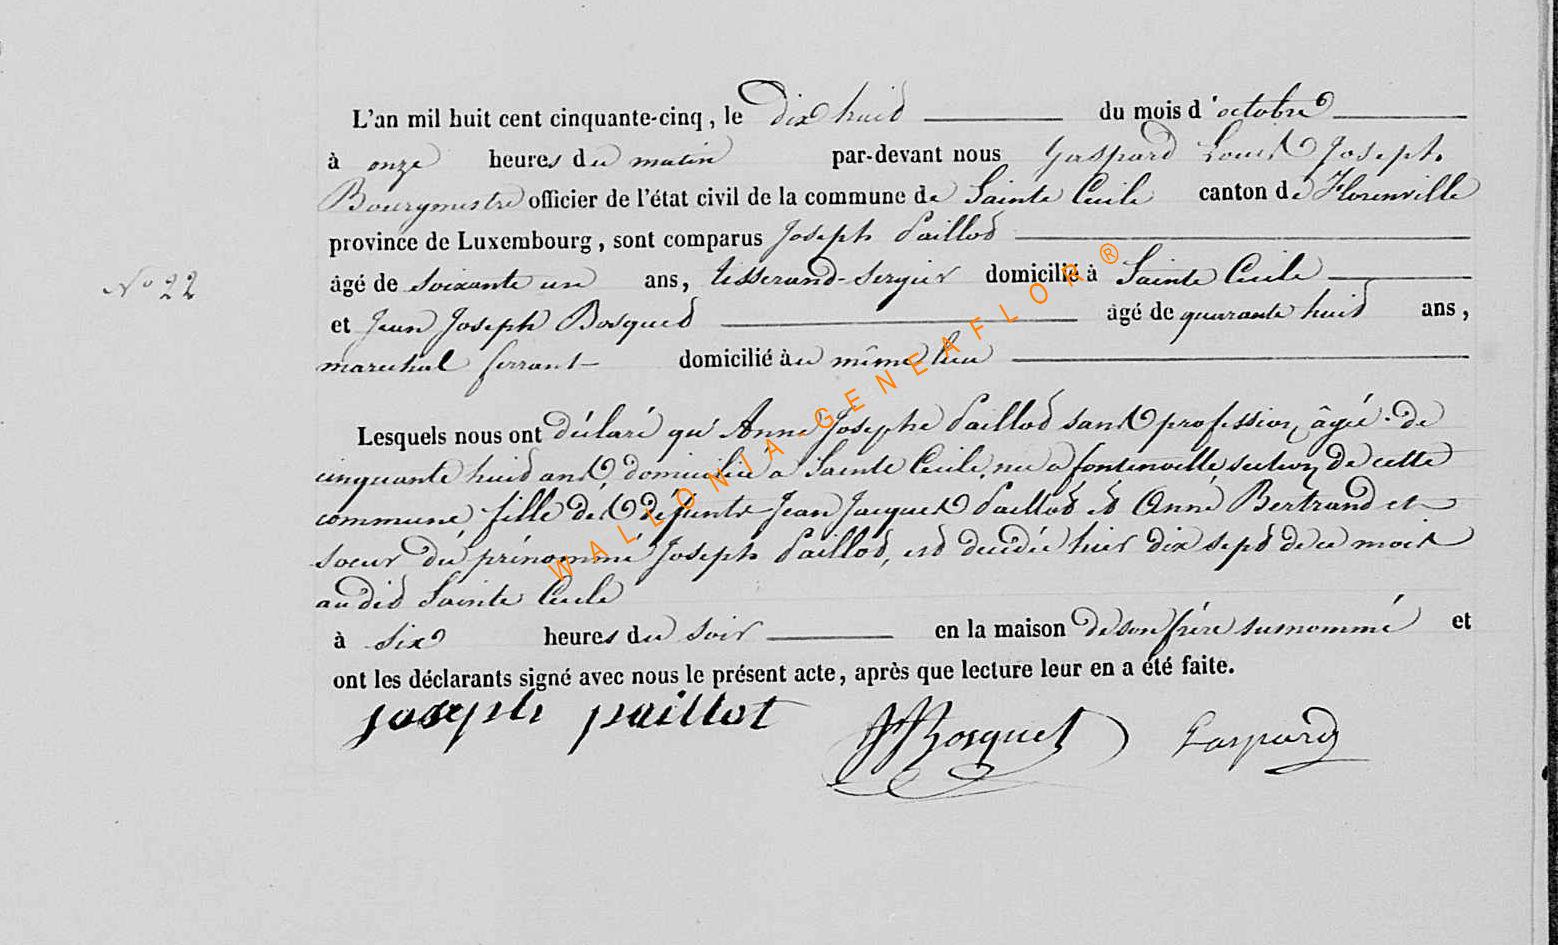 L'an mil huit cent cinquante-cinq, le dix huit du mois d'octobre
à onze heures du matin par-devant nous Gaspard Louis Joseph
Bourgmestre officier de l'état civil de la commune de Sainte Cécile canton de Florenville
province de Luxembourg, sont comparus Joseph Paillot
N° 22
âgé de soixante un ans, tisserand-sergier domicilié à Sainte Cécile
et Jean Joseph Bosquet âgé de quarante huit ans,
marechal ferrant domicilié au même lieu
Lesquels nous ont déclaré qu'Anne Josephe Paillot sans profession, âgée de
cinquante huit ans, domiciliée à Sainte Cécile, née à fontenoille section de cette
commune, fille des défunts Jean Jacques Paillot et Anne Bertrand et
sœur du prénommé Joseph Paillot, est décédée hier dix sept de ce mois
au dit Sainte Cécile
à six heures du soir en la maison de son frère susnommé et
ont les déclarants signé avec nous le présent acte, après que lecture leur en a été faite.
joseph paillot JJBosquet Gaspard
WALLONIA-GENEAFLOR®